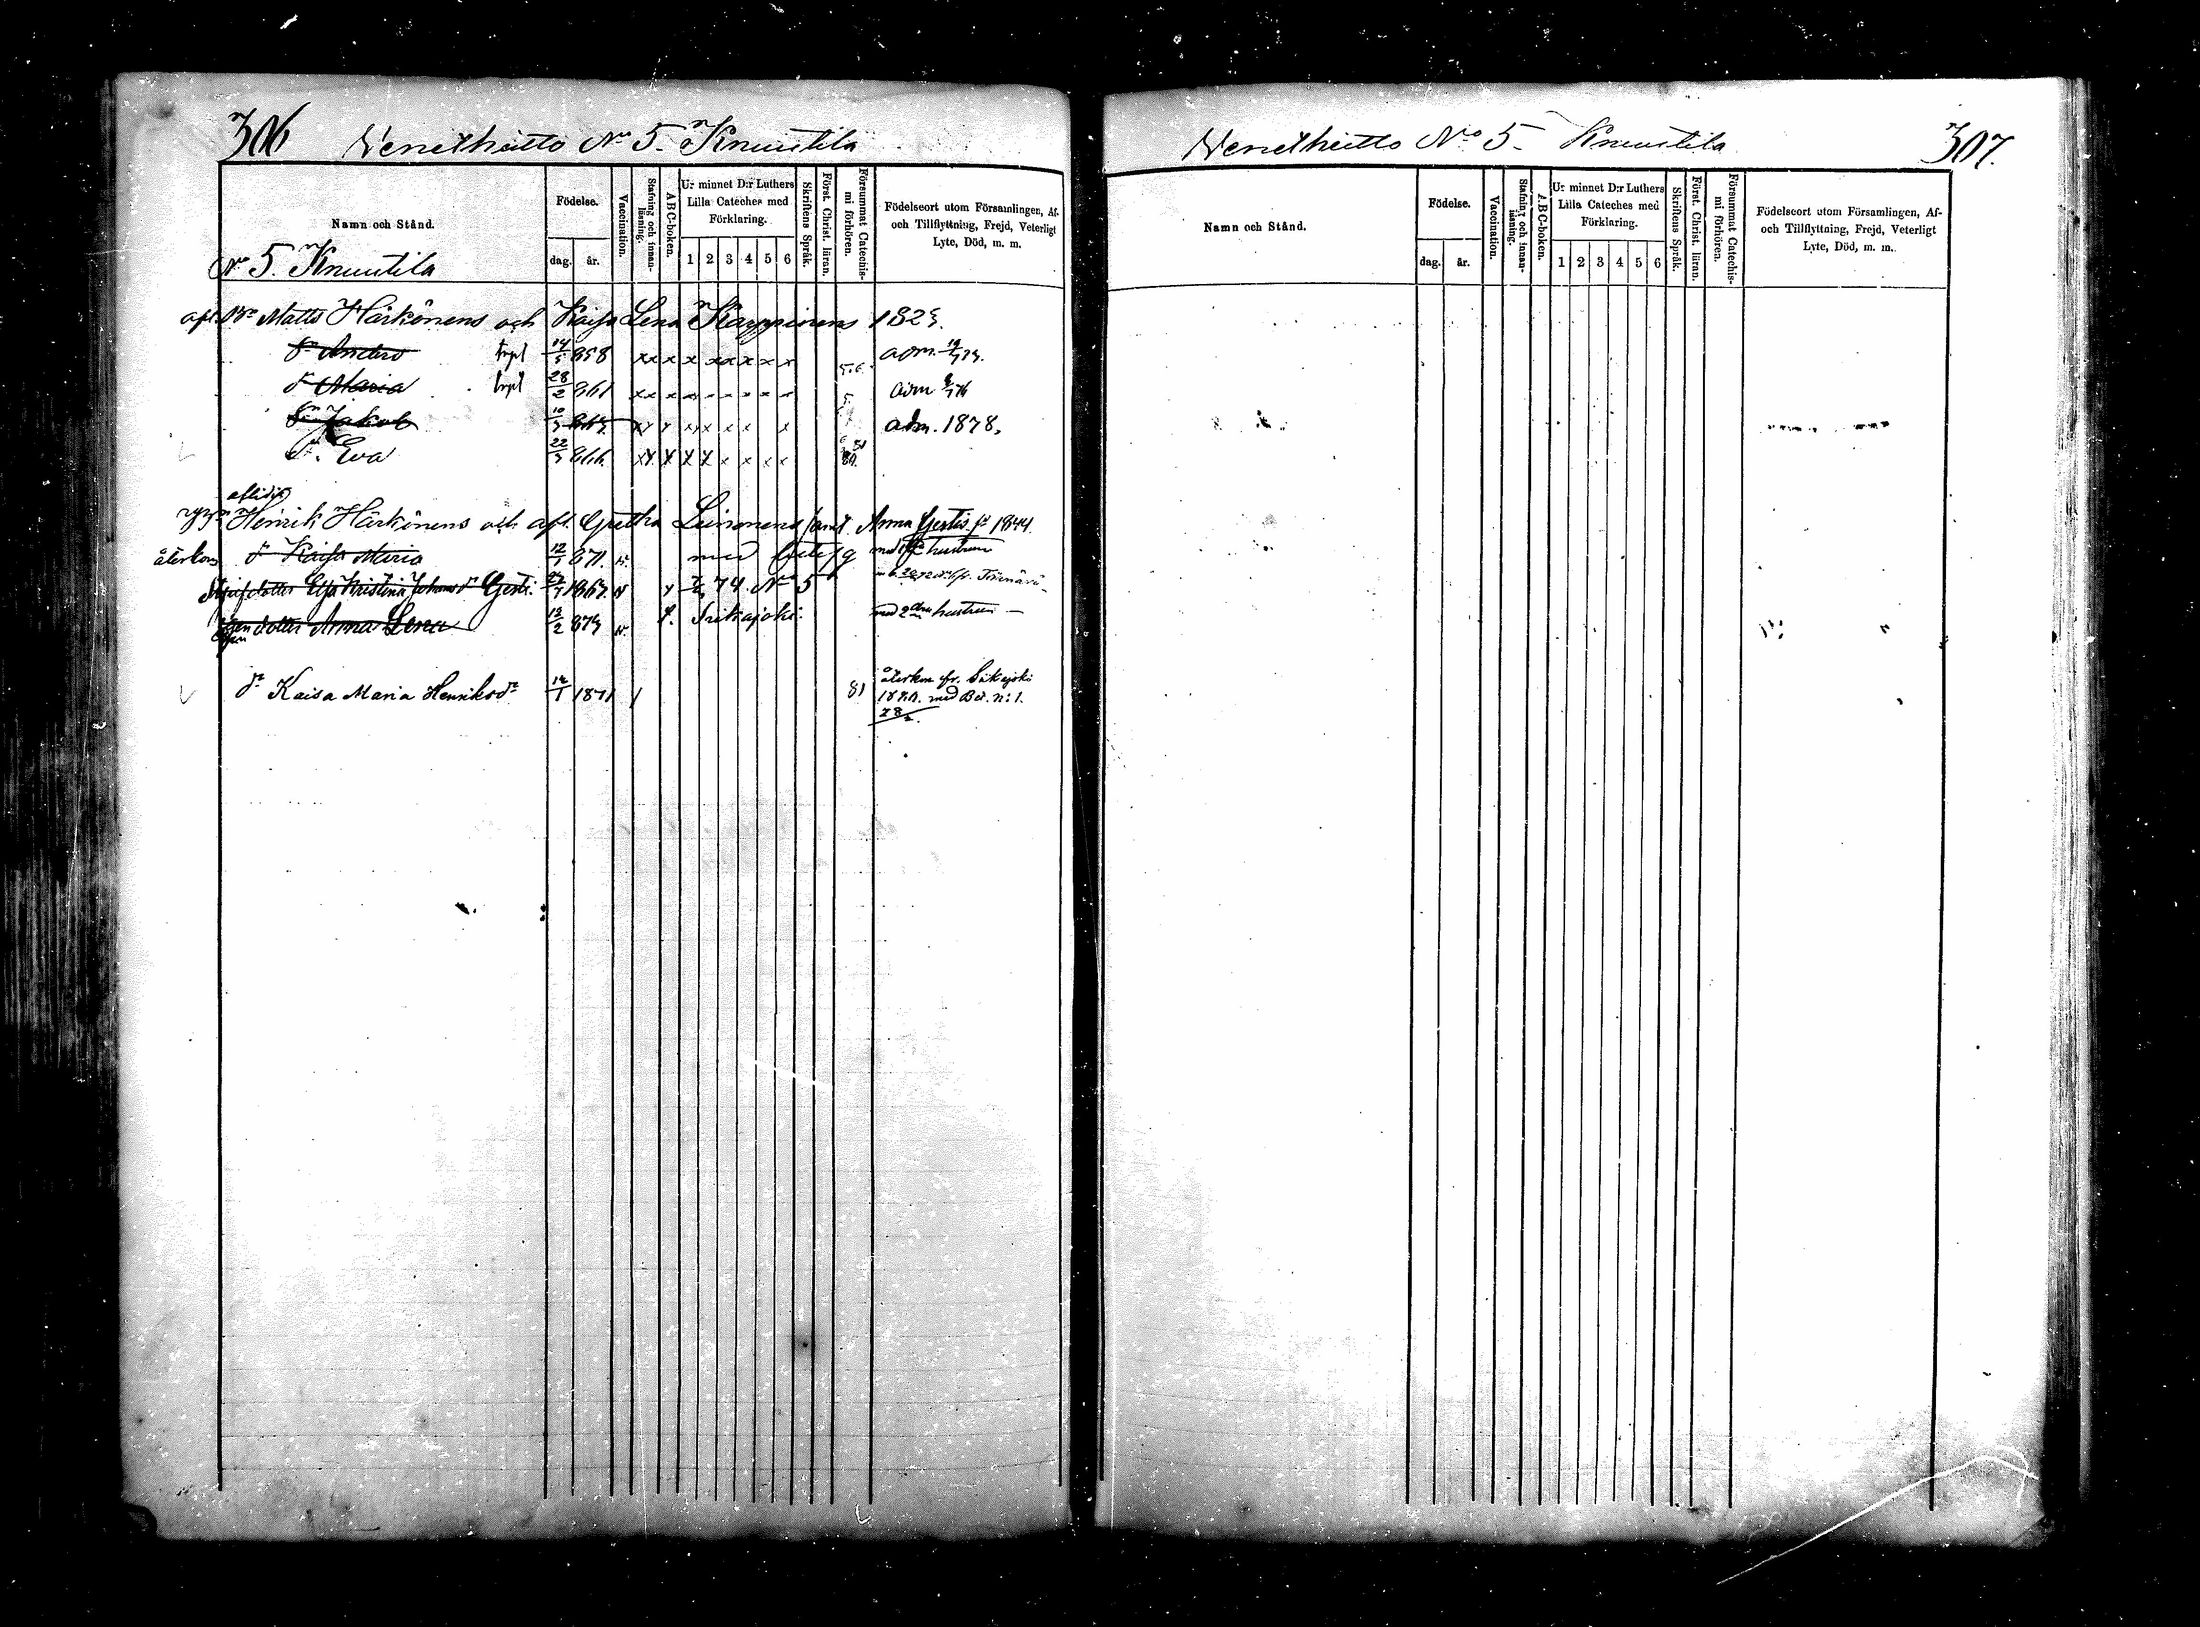 306
Venetheitto No 5. Knuutila
Namn och Stånd.
Födelse.
dag. år.
Vaccination.
Stafning och innan-läsning.
ABC-boken.
Ur minnet D:r Luthers
Lilla Cateches med
Förklaring.
1 2 3 4 5 6
Skriftens Språk.
Först. Christ. läran.
Försummat Catechis-mi förhören.
Födelseort utom Församlingen, Af-
och Tillflyttning, Frejd, Veterligt
Lyte, Död, m. m.
No 5. Knuutila
afl. Matts Härkönens och Kaisa Lena Karppinens 1823.
Sn Anders 14/5 858 x x x x x x x x x 5.6. adm.
dr Maria 28/2 861 x x x x x x x x x 5. adm
Sn Jakob x x x x x x x x adm. 1878,
dr. Eva 22/3 866 x x x x x x x x x
aflidne
Henrik Härkönens och afl. Gretha Leinonens samt Anna Gertis f. 1844
återkom dr Kaisa Maria 12/1 871. med
dotter Elsa Kristina Johansdr Gerti. 1867. 74. No 5
dotter Anna Lena 13/2 873 f. Siikajoki. med 2dra hustrun
dr Kaisa Maria Henriksdr 12/1 1871 / 81 återkom fr. Siikajoki
med Bet. n: 1.
307.
Venetheitto No 5. Knuutila
Namn och Stånd.
Födelse.
dag. år.
Vaccination.
Stafning och innan-läsning.
ABC-boken.
Ur minnet D:r Luthers
Lilla Cateches med
Förklaring.
1 2 3 4 5 6
Skriftens Språk.
Först. Christ. läran.
Försummat Catechis-mi förhören.
Födelseort utom Församlingen, Af-
och Tillflyttning, Frejd, Veterligt
Lyte, Död, m. m.